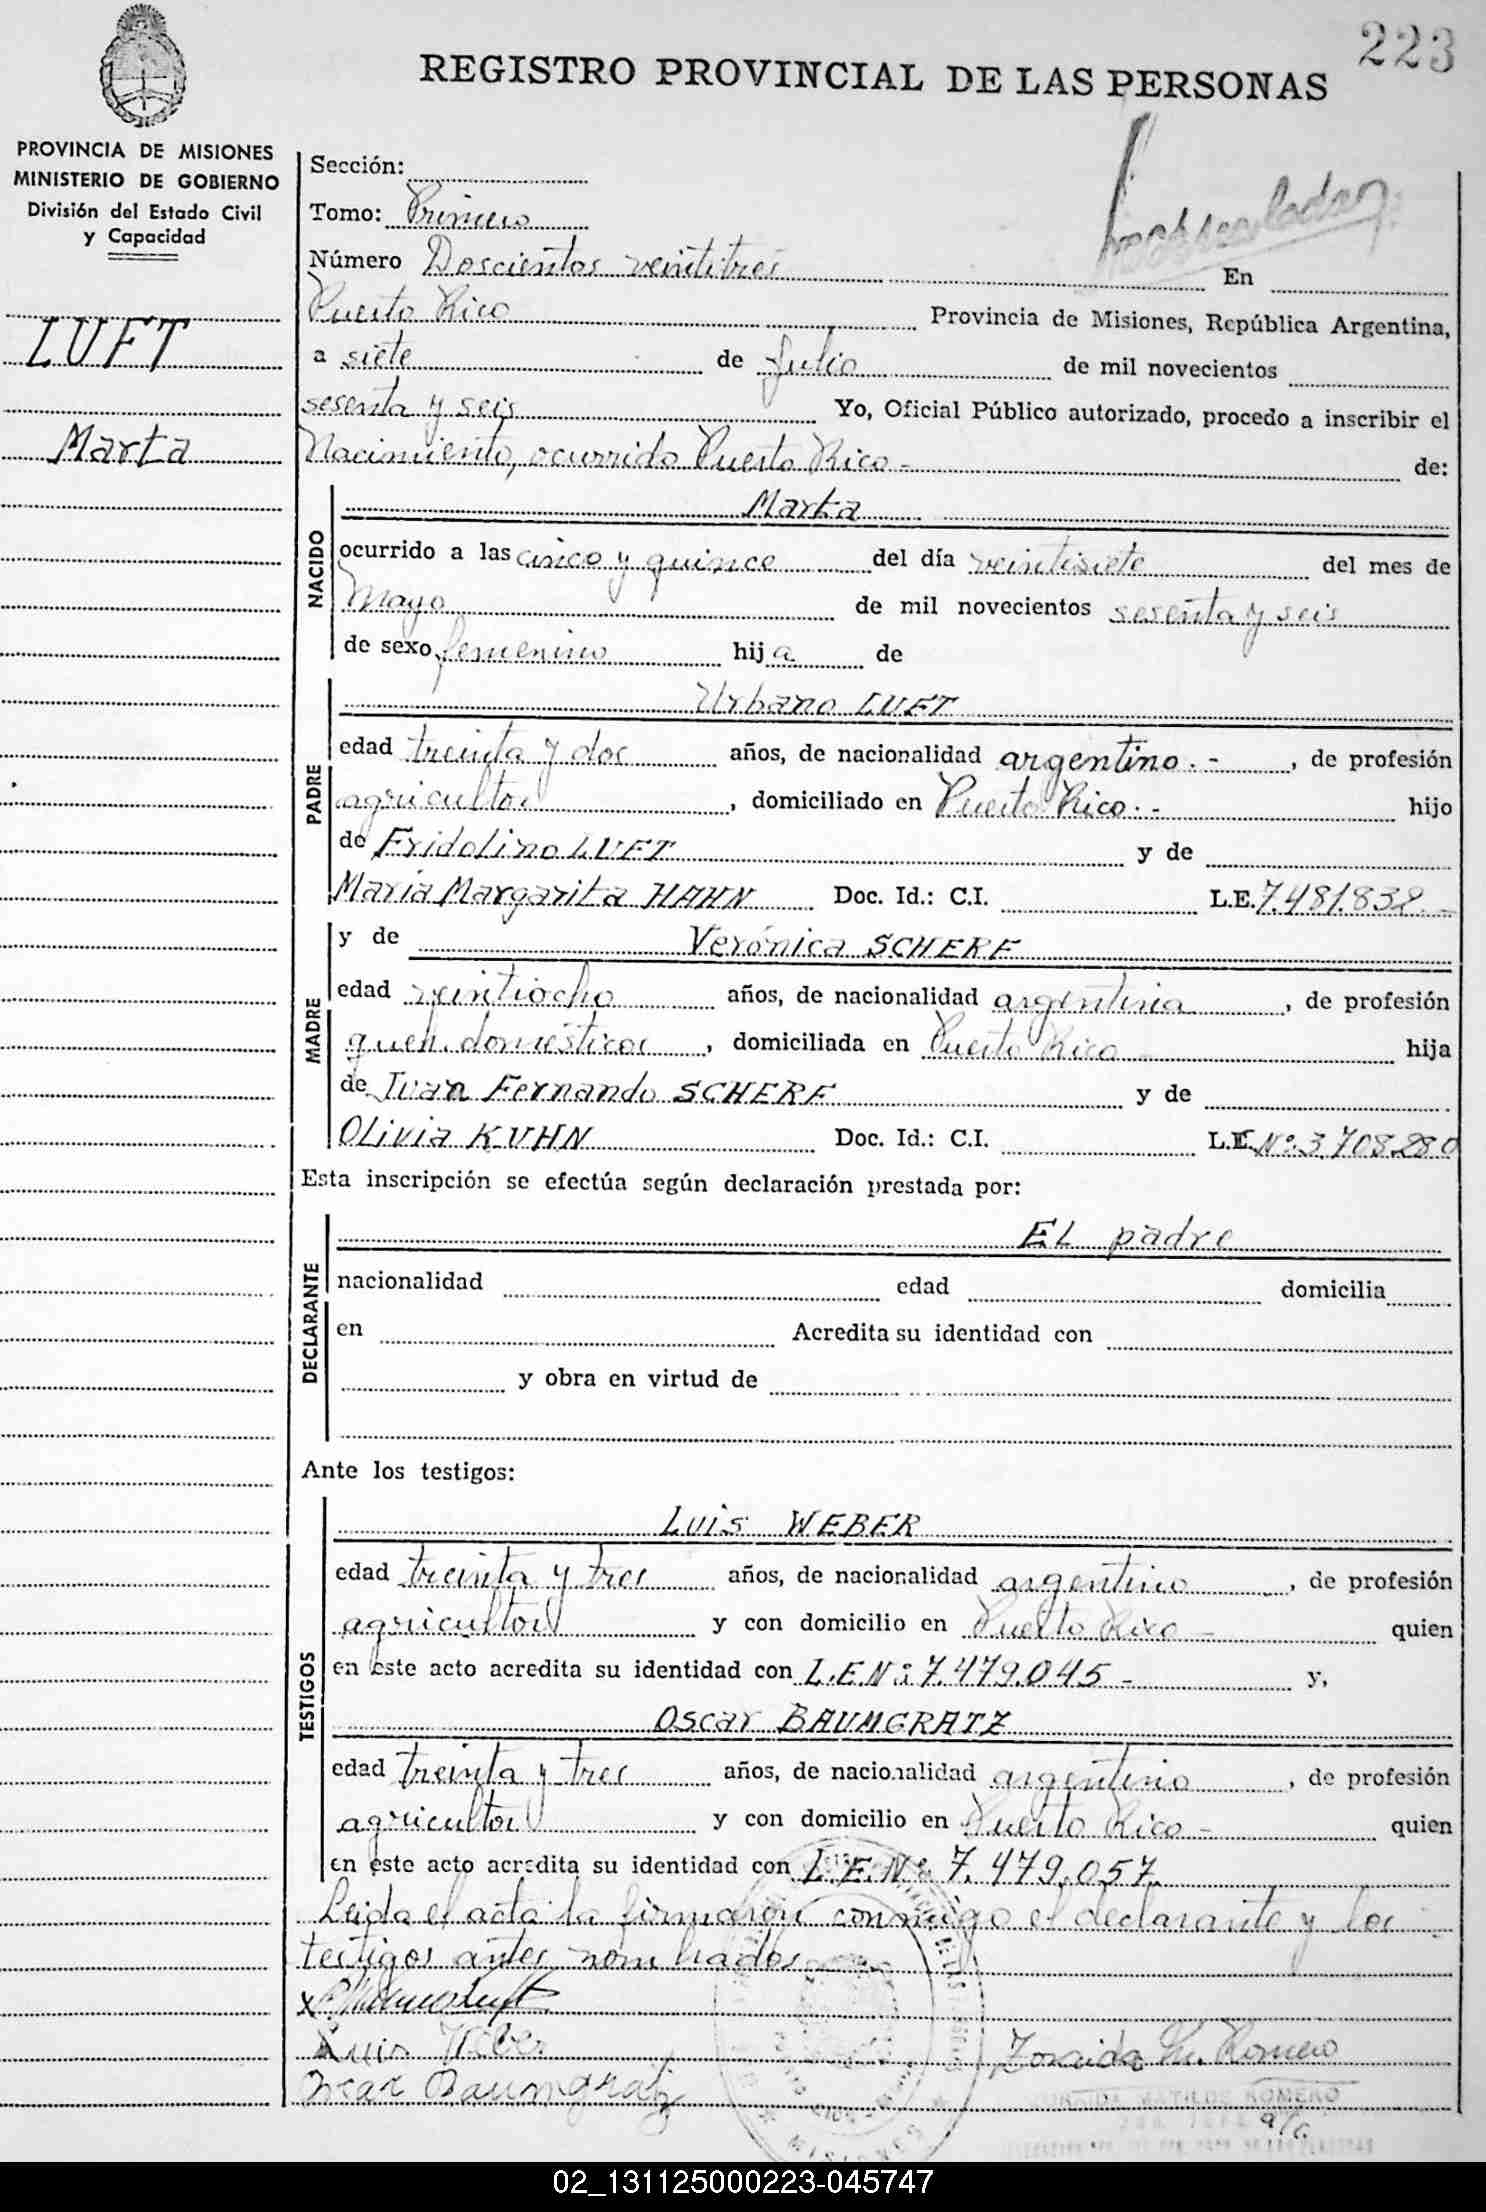 223
REGISTRO PROVINCIAL DE LAS PERSONAS
PROVINCIA DE MISIONES
MINISTERIO DE GOBIERNO
División del Estado Civil
y Capacidad
LUFT
Marta
Sección:
Tomo: Primero
Número Doscientos veintitres En
Puerto Rico Provincia de Misiones, República Argentina,
a siete de Julio de mil novecientos
sesenta y seis Yo, Oficial Público autorizado, procedo a inscribir el
Nacimiento, ocurrido Puerto Rico - de:
NACIDO
Marta
ocurrido a las cinco y quince del día veintisiete del mes de
Mayo de mil novecientos sesenta y seis
de sexo femenino hija de
PADRE
Urbano LUFT
edad treinta y dos años, de nacionalidad argentino. - , de profesión
agricultor , domiciliado en Puerto Rico. - hijo
de Fridolino LUFT y de
María Margarita HAHN Doc. Id.: C.I. L.E. 7.481.832. -
MADRE
y de Verónica SCHERF
edad veintiocho años, de nacionalidad argentina , de profesión
queh. domésticos , domiciliada en Puerto Rico - hija
de Juan Fernando SCHERF y de
Olivia KUHN Doc. Id.: C.I. L.E. Nº 3.708.280
Esta inscripción se efectúa según declaración prestada por:
DECLARANTE
EL padre
nacionalidad edad domicilia
en Acredita su identidad con
y obra en virtud de
Ante los testigos:
TESTIGOS
Luis WEBER
edad treinta y tres años, de nacionalidad argentino , de profesión
agricultor y con domicilio en Puerto Rico - quien
en este acto acredita su identidad con L.E.Nº 7.479.045 - y,
Oscar BAUMGRATZ
edad treinta y tres años, de nacionalidad argentino , de profesión
agricultor y con domicilio en Puerto Rico - quien
en este acto acredita su identidad con L.E.Nº 7.479.057.
Leida el acta la firmaron conmigo el declarante y los
testigos antes nombrados
Luis Weber
Zoraida M. Romero
Oscar Baumgratz
ZORAIDA MATILDE ROMERO
02_131125000223-045747